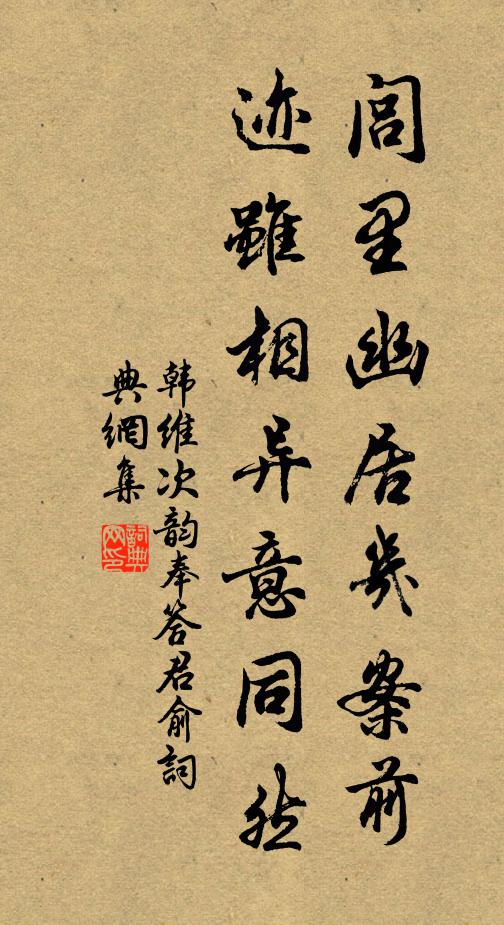 闾里幽居几案前
迹雖相异意同然
韩维次韵奉答君俞詞
典網集
詞典
网印